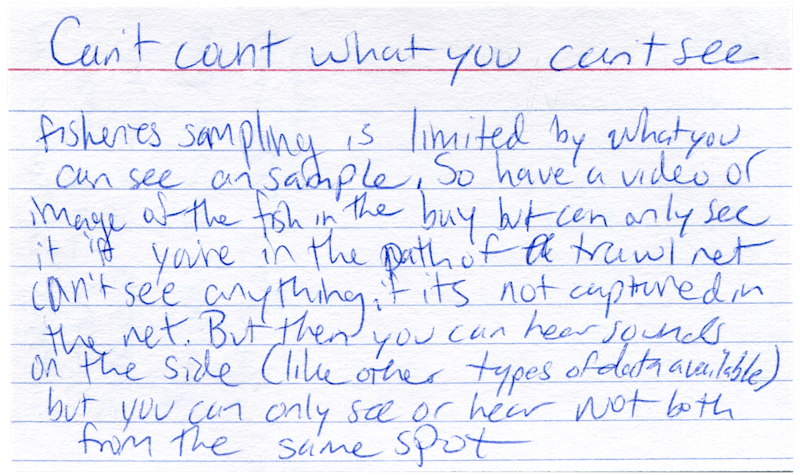 Can't count what you can't see
fisheries sampling is limited by what you
can see an sample. So have a video or
image of the fish in the buy but can only see
it if you're in the path of a trawl net
can't see anything if its not captured in
the net. But then you can hear sounds
on the side (like other types of data available)
but you can only see or hear not both
from the same spot